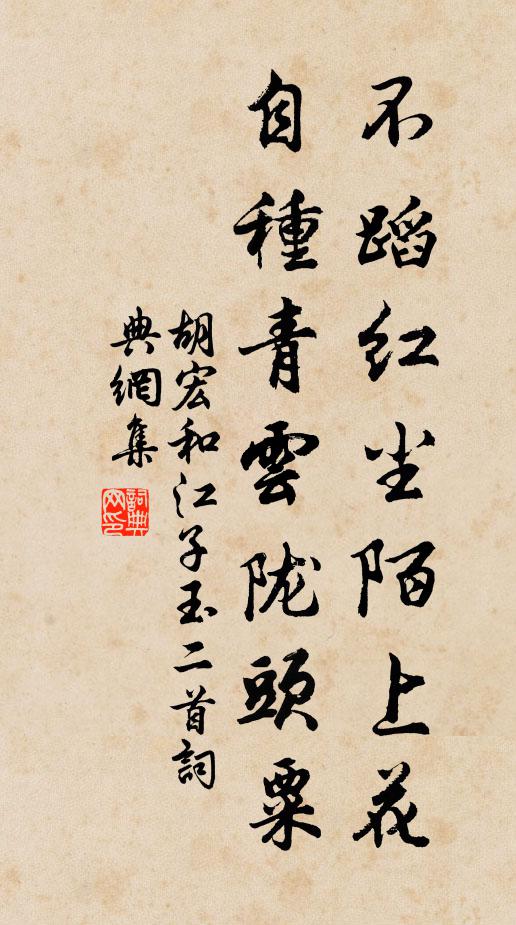 不蹈红尘陌上花
自種青雲陇頭粟
胡宏和江子玉二首詞
典網集
詞典網印